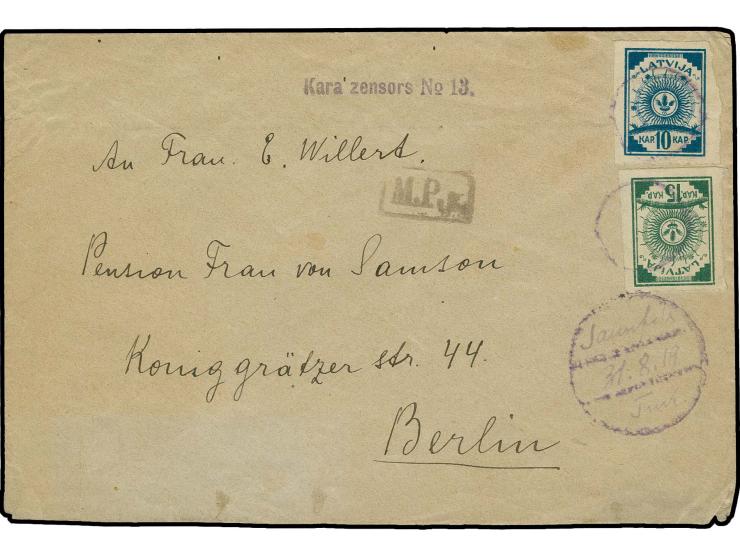 Kara zensors № 13.
LATVIJA
KAP. 10 KAP.
An Frau. E. Willert.
M.P.
KAP. 15 KAP.
LATVIJA
Pension Frau von Samson
Königgrätzer str. 44.
Berlin
31. 8. 19